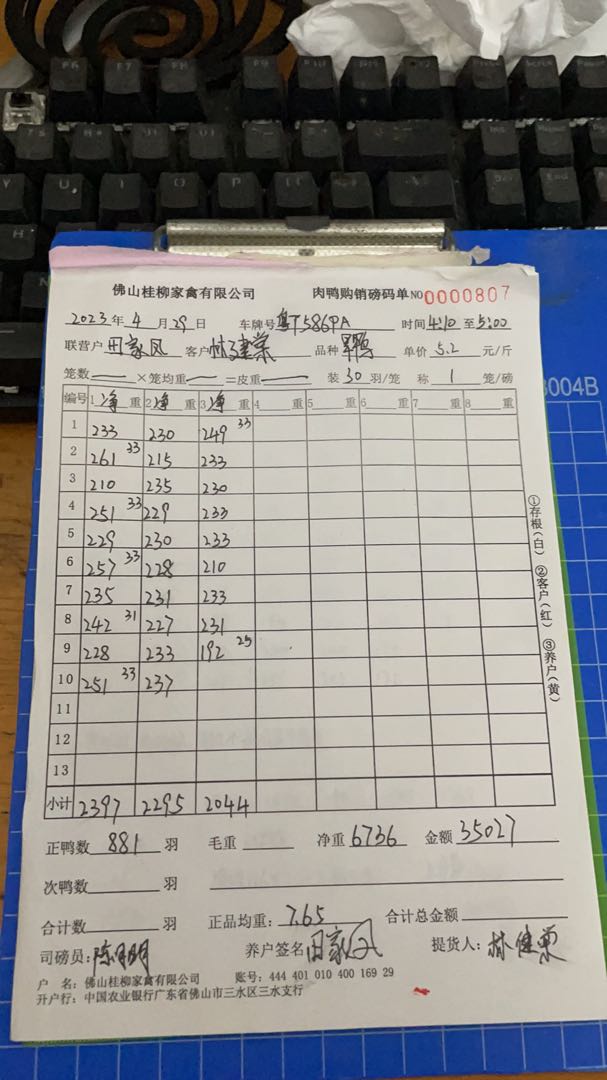 F6 F7 F8 F9 F10
Y U I O P
佛山桂柳家禽有限公司 肉鸭购销磅码单 NO 0000807
2023 年 4 月 29 日 车牌号 粤T586PA 时间 4:10 至 5:00
联营户 田家凤 客户 林建荣 品种 单价 5.2 元/斤
笼数 — ×笼均重 — =皮重 — 装 30 羽/笼 称 1 笼/磅
编号 1 净 重 2 净 重 3 净 重 4 重 5 重 6 重 7 重 8 重
1 233 230 249 33
2 261 33 215 233
3 210 235 230
4 251 33 229 233
5 229 230 233
6 257 33 228 210
7 235 231 233
8 242 31 227 231
9 228 233 192 25
10 251 33 237
11
12
13
小计 2397 2295 2044
①存根(白) ②客户(红) ③养户(黄)
正鸭数 881 羽 毛重 净重 6736 金额 35027
次鸭数 羽
合计数 羽 正品均重: 7.65 合计总金额
司磅员: 养户签名 田家凤 提货人: 林健荣
户 名: 佛山桂柳家禽有限公司 账号: 444 401 010 400 169 29
开户行: 中国农业银行广东省佛山市三水区三水支行
3004B